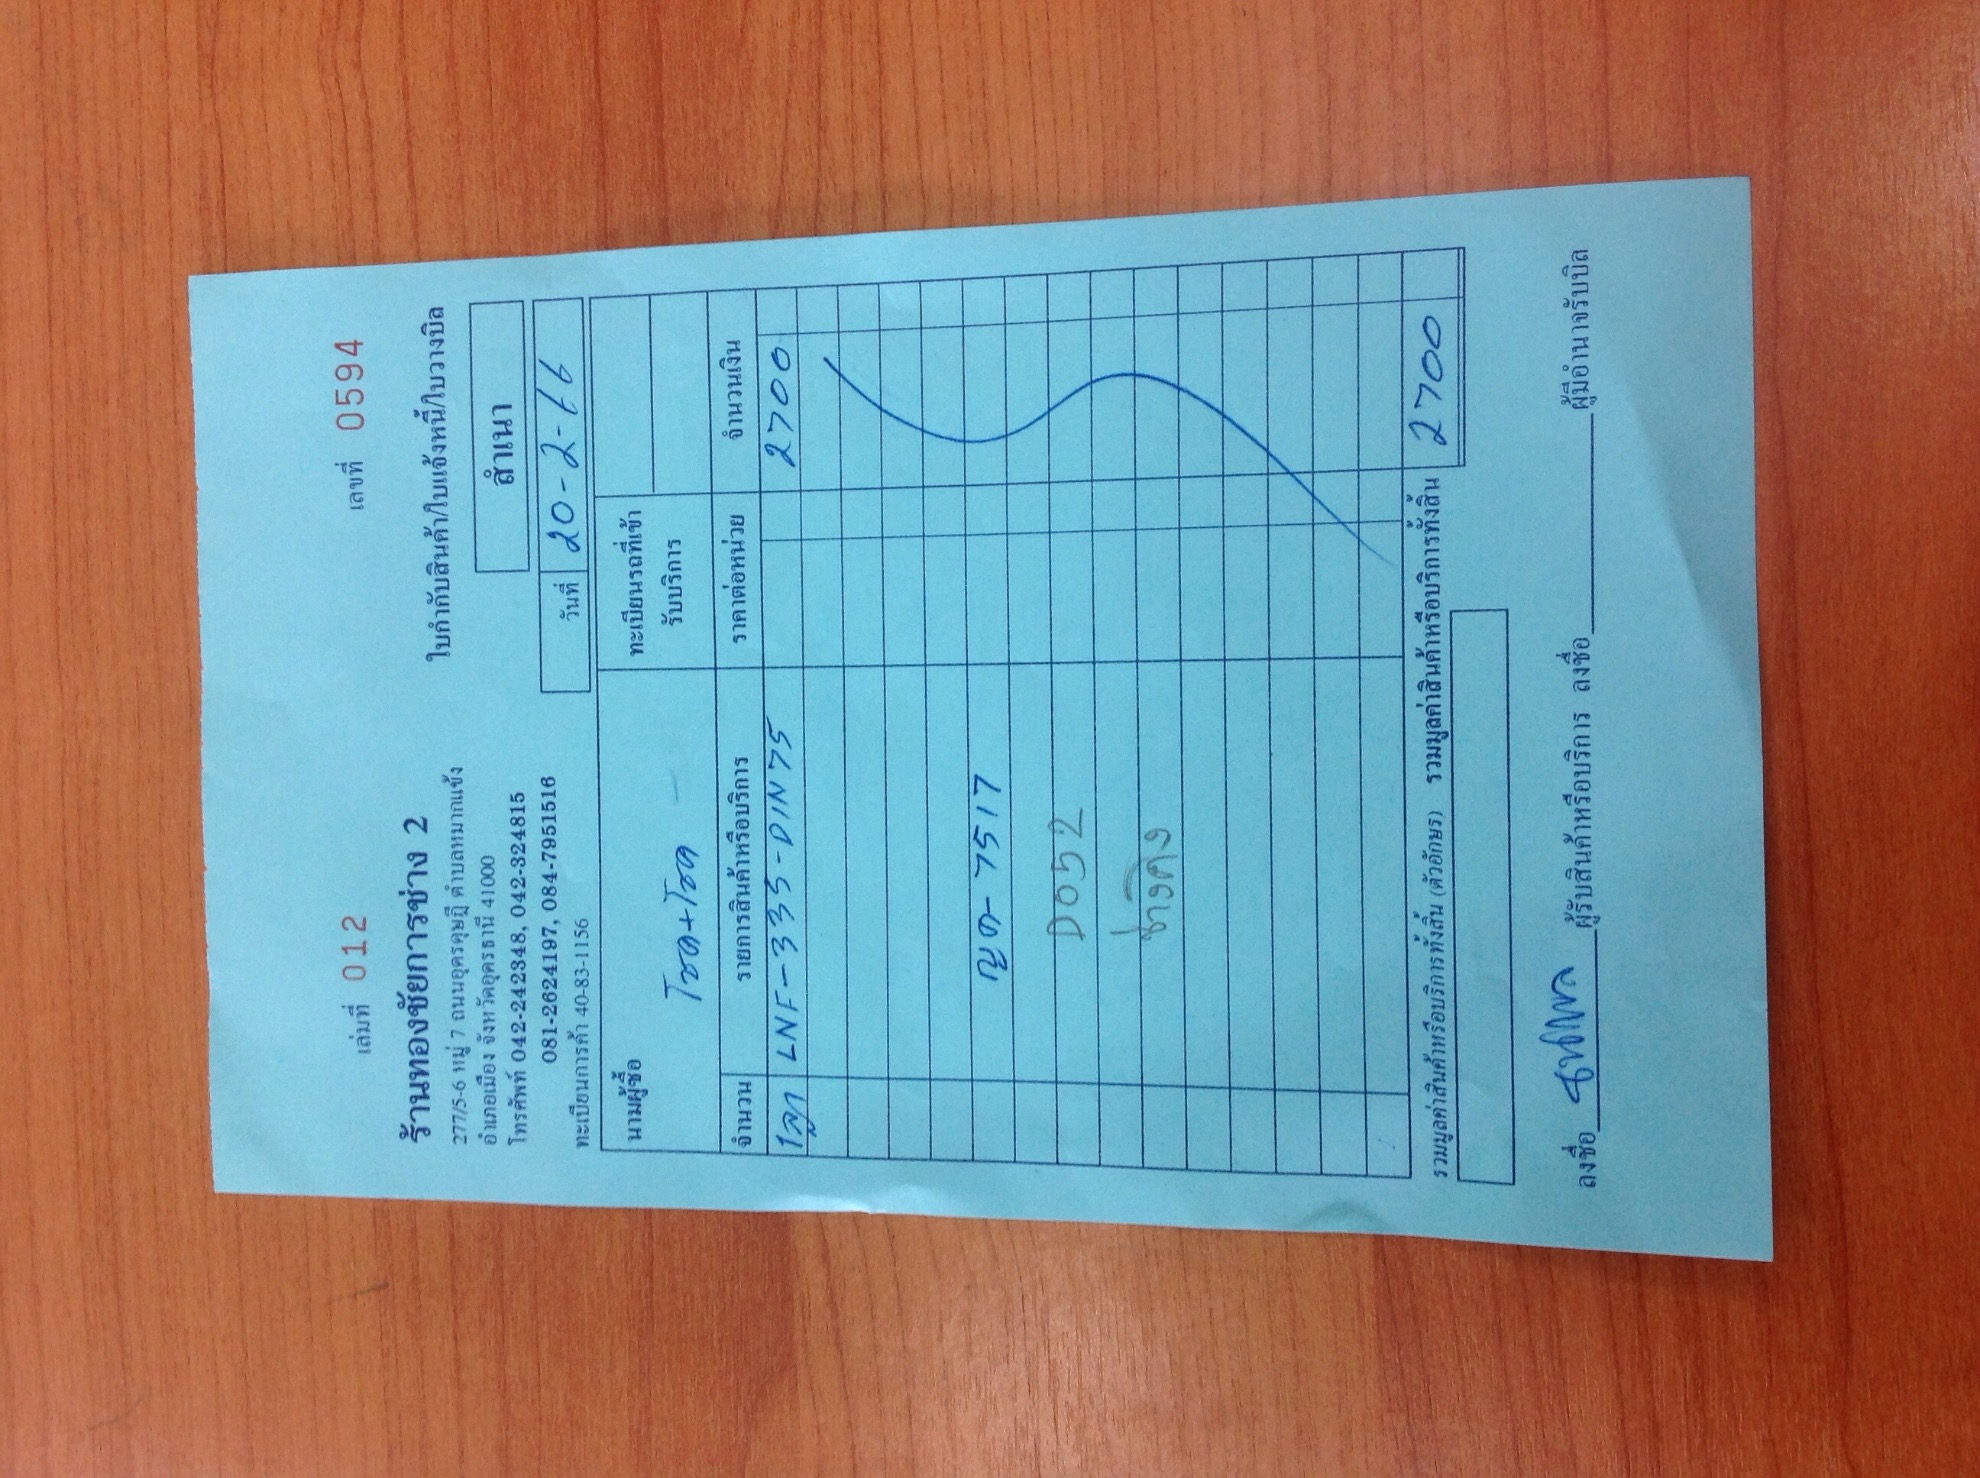 เล่มที่ 012 เลขที่ 0594
ร้านทองชัยการช่าง 2 ใบกำกับสินค้า/ใบแจ้งหนี้/ใบวางบิล
277/5-6 หมู่ 7 ถนนอุดรดุษฎี ตำบลหมากแข้ง
อำเภอเมือง จังหวัดอุดรธานี 41000
สำเนา
โทรศัพท์ 042-242348, 042-324815
081-2624197, 084-7951516
วันที่ 20-2-66
ทะเบียนการค้า 40-83-1156
นามผู้ซื้อ
ทะเบียนรถที่เข้า
รับบริการ
จำนวน รายการสินค้าหรือบริการ ราคาต่อหน่วย จำนวนเงิน
1 ลูก LNF-335-DIN75 2700
ญด-7517
D052
รวมมูลค่าสินค้าหรือบริการทั้งสิ้น (ตัวอักษร) รวมมูลค่าสินค้าหรือบริการทั้งสิ้น 2700
ลงชื่อ ผู้รับสินค้าหรือบริการ ลงชื่อ ผู้มีอำนาจรับบิล